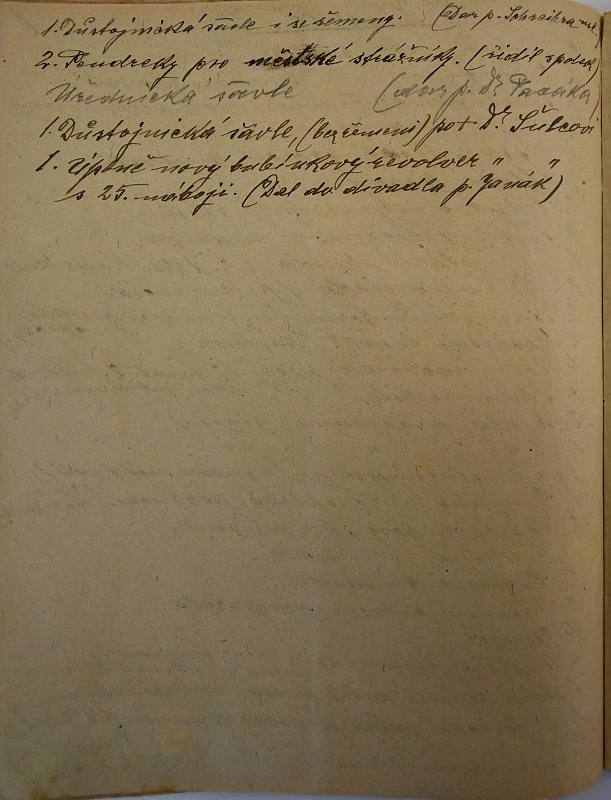 1. Důstojnická šavle i se řemeny. (Dar p. Schreibra ml.)
2. Pendreky pro městské strážníky. (řídil spolek)
Úřednická šavle (dar p. Dr Pacáka)
1. Důstojnická šavle, (bez řemenů) po † Dr. Šulcovi
1. Úplně nový bubínkový revolver " "
s 25. náboji. (Dal do divadla p. Janák)